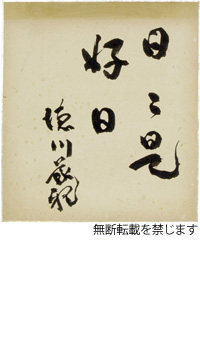 日々是
好日
徳川義親
無断転載を禁じます